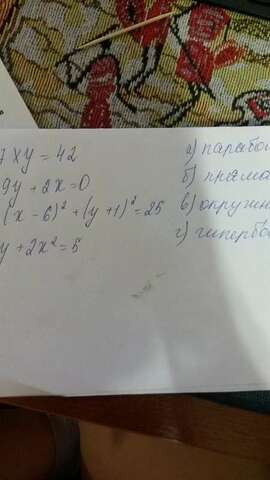 7xy = 42
9y + 2x = 0
(x - 6)² + (y + 1)² = 25
y + 2x² = 5
а) парабол
б) пряма
в) окружн
г) гипербо